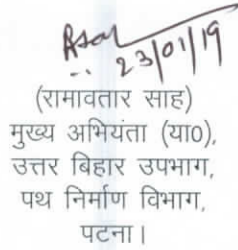 23/01/19
(रामावतार साह)
मुख्य अभियंता (या0),
उत्तर बिहार उपभाग,
पथ निर्माण विभाग,
पटना।